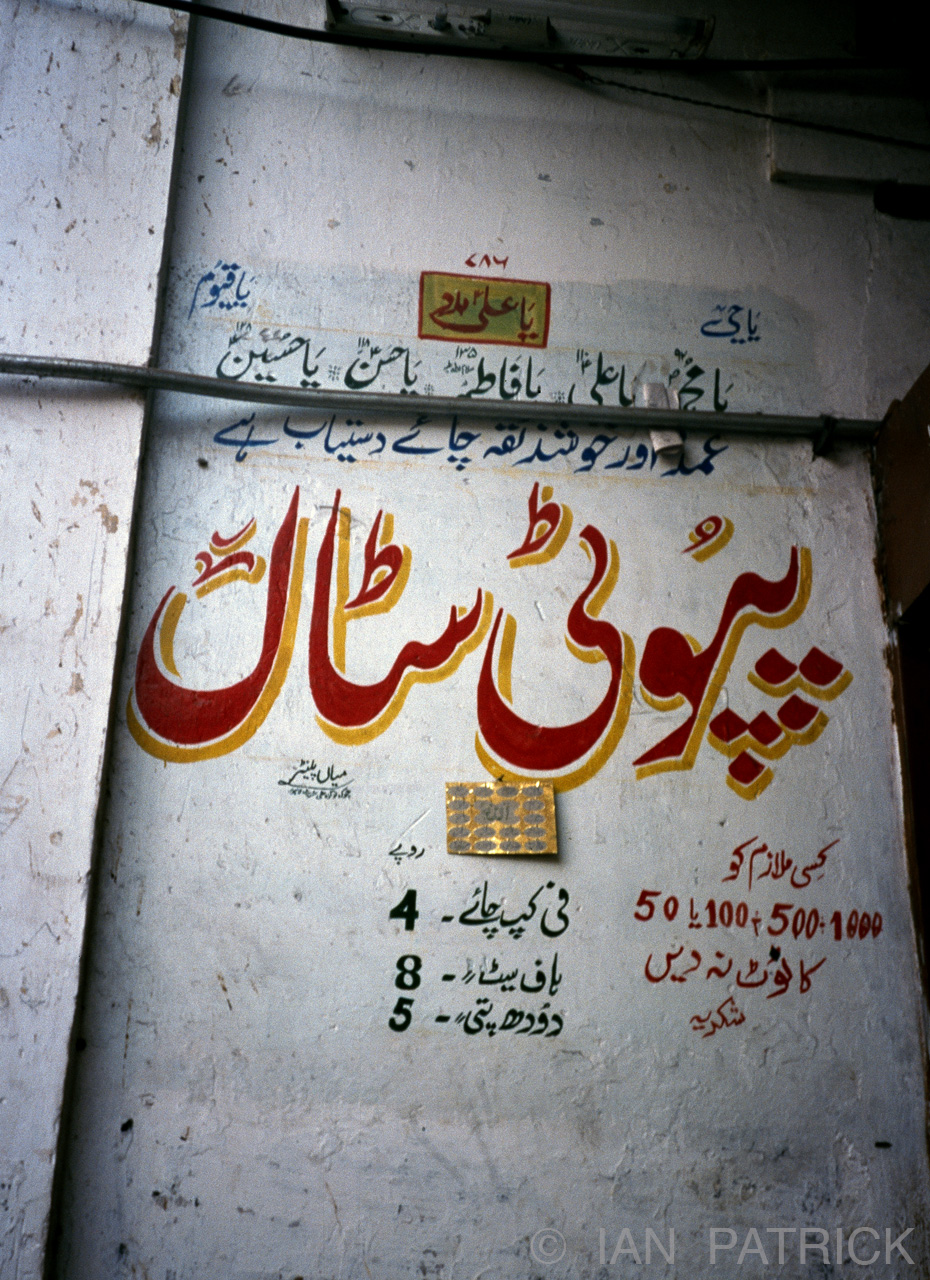 ۷۸۶
یا حیّ یا علیؑ مدد یا قیوم
یا محمدؐ یا علیؑ یا فاطمہؑ یا حسنؑ یا حسینؑ
عمدہ اور خوشذئقہ چائے دستیاب ہے
پپوٹی سٹال
میاں پینٹر
اللہ
روپے
فی کپ چائے - 4
ہاف سیٹ - 8
دودھ پتی - 5
کسی ملازم کو
50 یا 100، 500، 1000
کا نوٹ نہ دیں
شکریہ
© IAN PATRICK